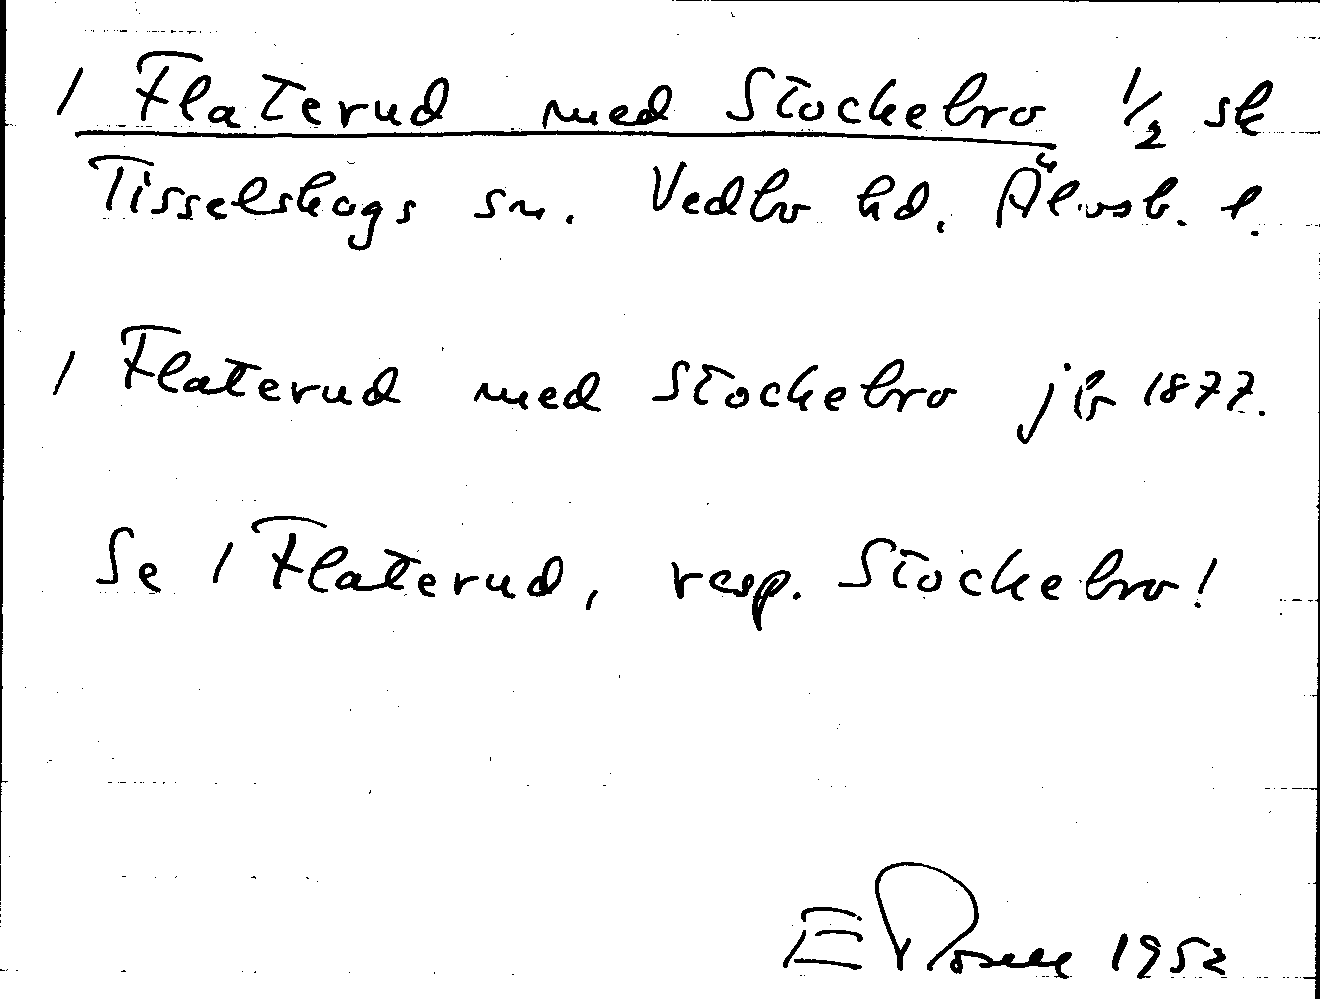 1 Flaterud med Stockebro 1/2 sk
Tisselskogs sn. Vedbo hd. Älvsb. l.
1 Flaterud med Stockebro jb 1877.
Se 1 Flaterud, resp. Stockebro!
E Rosell 1952